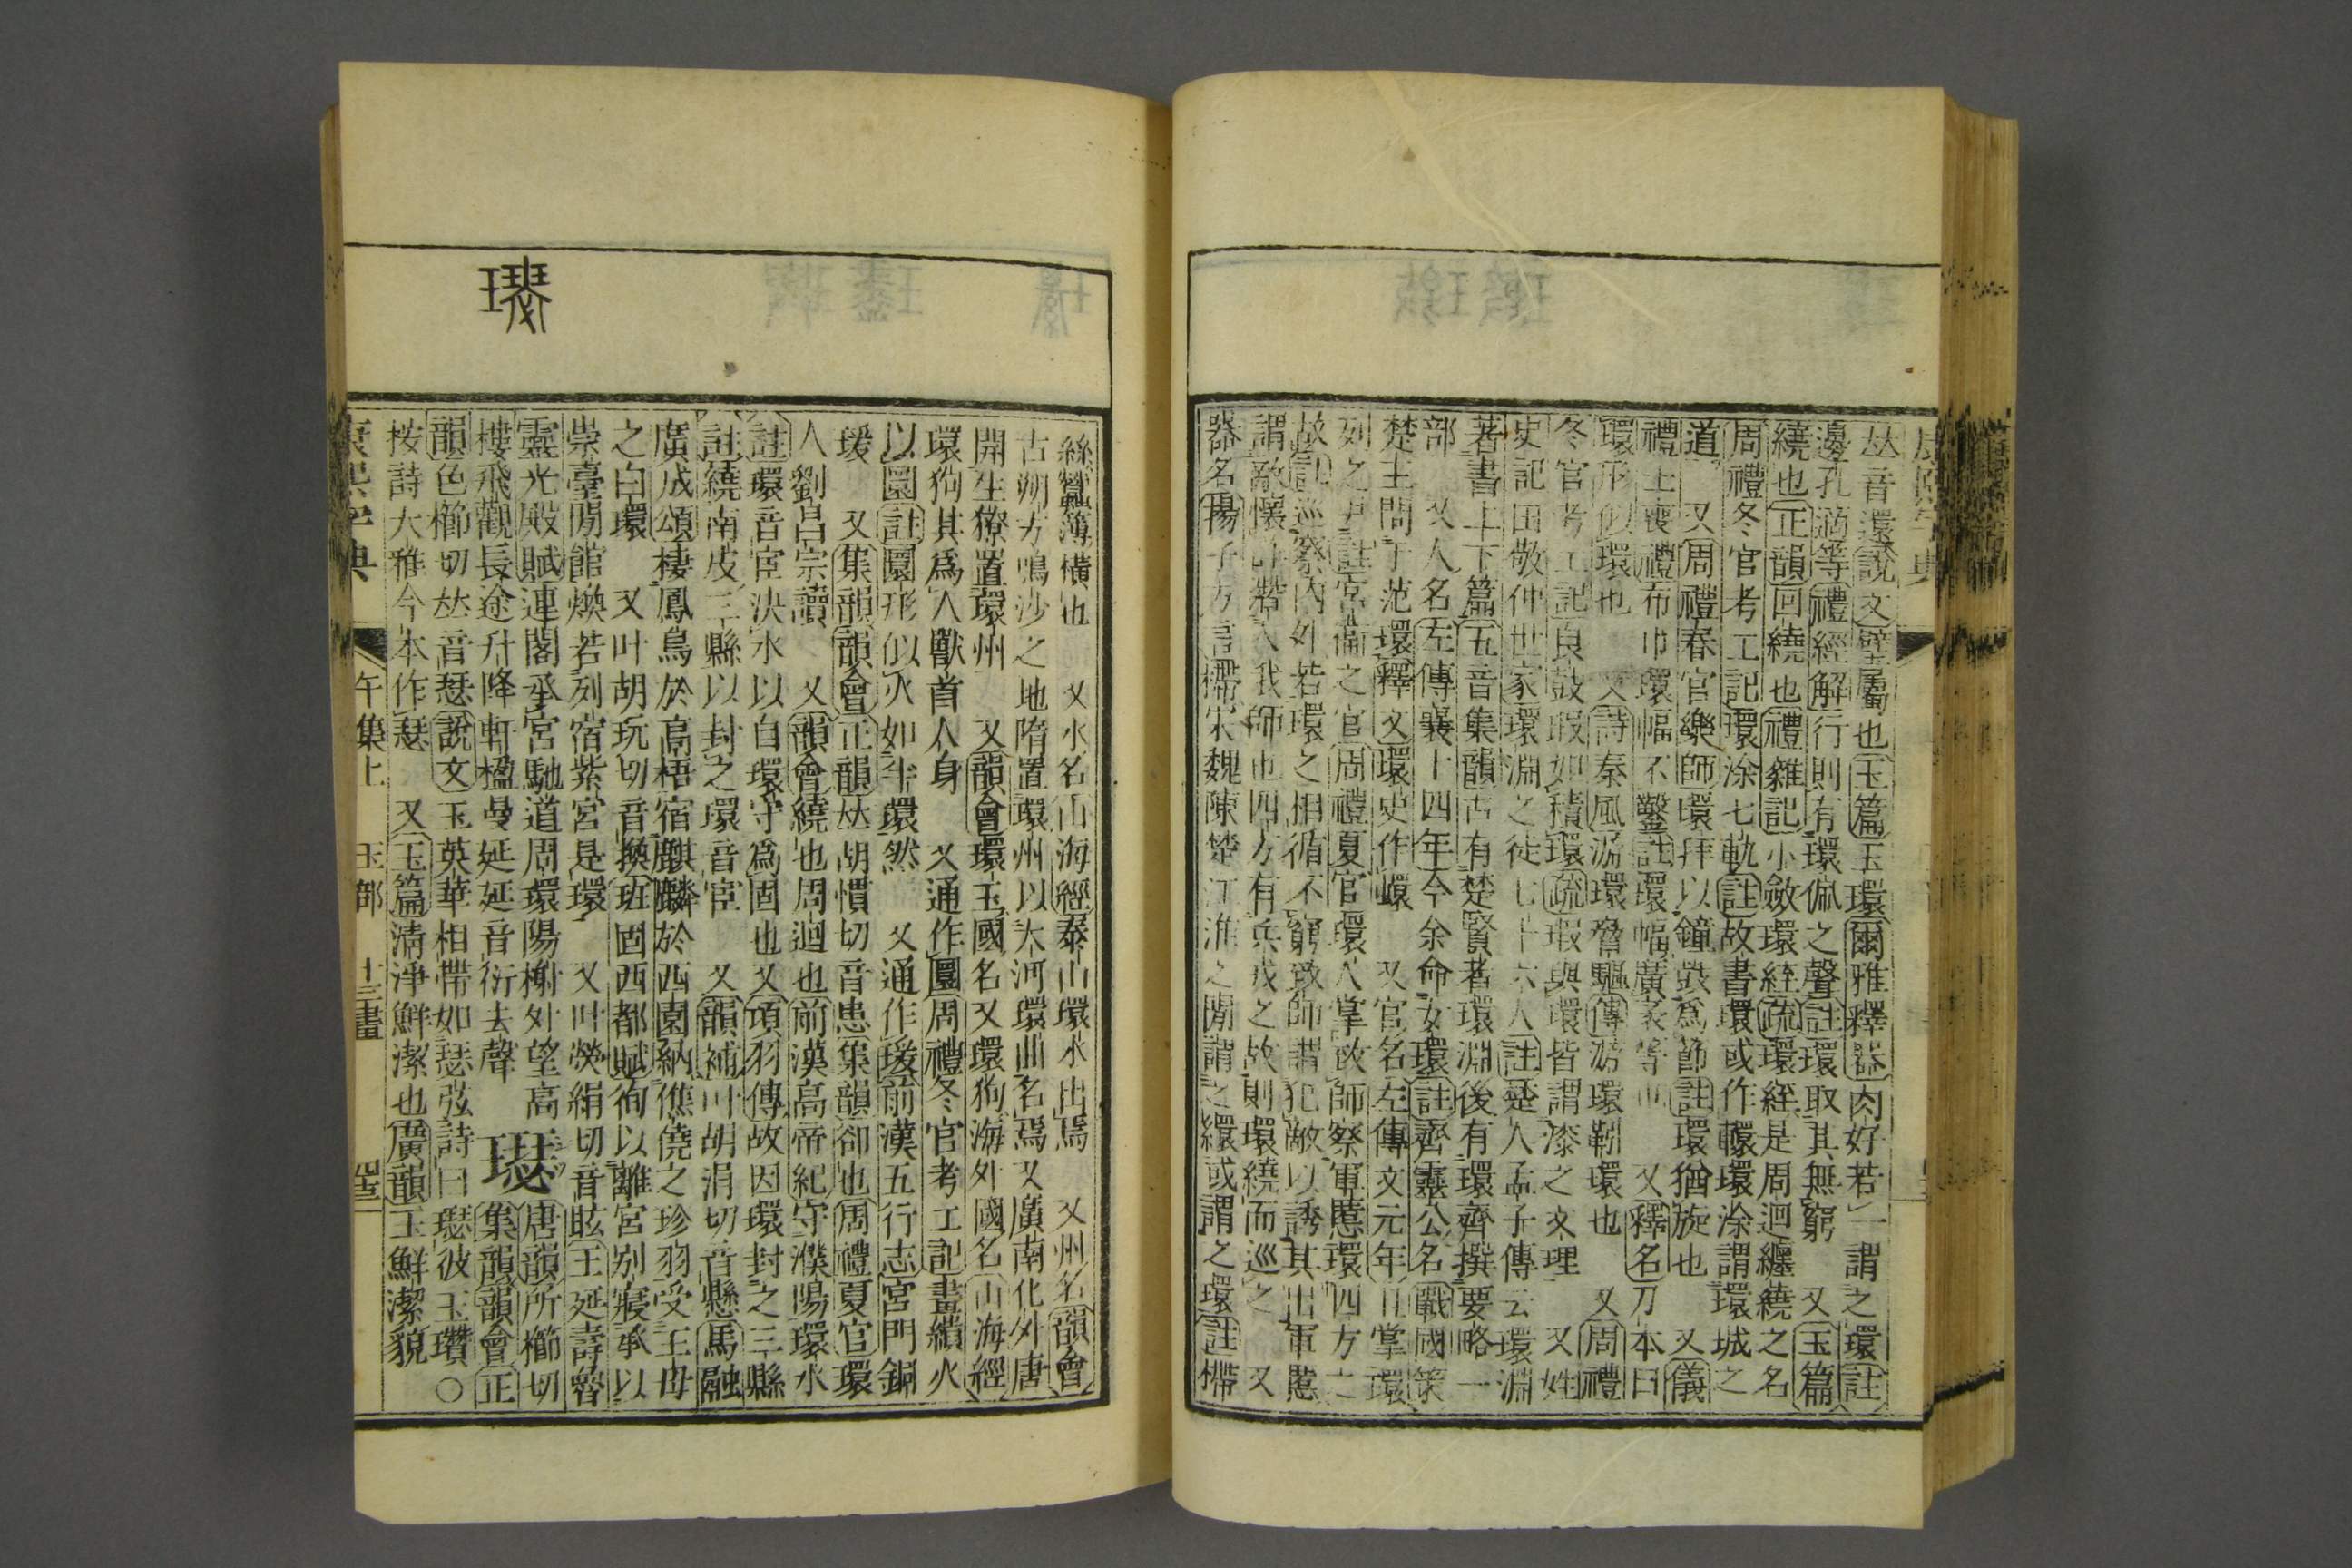 𠀤音還說文璧屬也玉篇玉環爾雅釋器肉好若一謂之環註
邊孔適等禮經解行則有環佩之聲註環取其無窮 又玉篇
繞也正韻回繞也禮雜記小斂環絰疏環絰是周迴纏繞之名
周禮冬官考工記環涂七軌註故書環或作轘環涂謂環城之
道 又周禮春官樂師環拜以鐘鼓爲節註環猶旋也 又儀
禮士喪禮布巾環幅不鑿註環幅廣袤等也 又釋名刀本曰
環形似環也 又詩秦風游環脅驅傳游環靷環也 又周禮
冬官考工記良鼓瑕如積環疏瑕與環皆謂漆之文理 又姓
史記田敬仲世家環淵之徒七十六人註楚人孟子傳云環淵
著書上下篇五音集韻古有楚賢者環淵後有環齊撰要略一
部 又人名左傳襄十四年今余命女環註齊靈公名戰國策
楚王問于范環釋文環史作蠉 又官名左傳文元年且掌環
列之尹註宮衞之官周禮夏官環人掌致師察軍慝環四方之
故註巡察內外若環之相循不窮致師謂犯敵以誘其出軍慝
謂敵懷計陷入我師也四方有兵戎之故則環繞而巡之 又
器名揚子方言槌宋魏陳楚江淮之閒謂之繯或謂之環註槌
絲蠶簿橫也 又水名山海經泰山環水出焉 又州名韻會
古朔方鳴沙之地隋置環州以大河環曲名焉又廣南化外唐
開生獠置環州 又韻會環玉國名又環狗海外國名山海經
環狗其爲人獸首人身 又通作圜周禮冬官考工記畫繢火
以圜註圜形似火如半環然 又通作瑗前漢五行志宮門銅
瑗 又集韻韻會正韻𠀤胡慣切音患集韻卻也周禮夏官環
人劉昌宗讀 又韻會繞也周迴也前漢高帝紀守濮陽環水
註環音宦決水以自環守爲固也又項羽傳故因環封之三縣
註繞南皮三縣以封之環音宦 又韻補叶胡涓切音懸馬融
廣成頌棲鳳鳥於高梧宿麒麟於西園納僬僥之珍羽受王母
之白環 又叶胡玩切音換班固西都賦徇以離宮別寢承以
崇臺閒館煥若列宿紫宮是環 又叶熒絹切音眩王延壽魯
靈光殿賦連閣承宮馳道周環陽榭外望高
樓飛觀長途升降軒檻曼延延音衍去聲 璱 唐韻所櫛切集韻韻會正
韻色櫛切𠀤音瑟說文玉英華相帶如瑟弦詩曰璱彼玉瓚○
按詩大雅今本作瑟 又玉篇淸淨鮮潔也廣韻玉鮮潔貌
康熙字典 午集上 玉部 十三畫